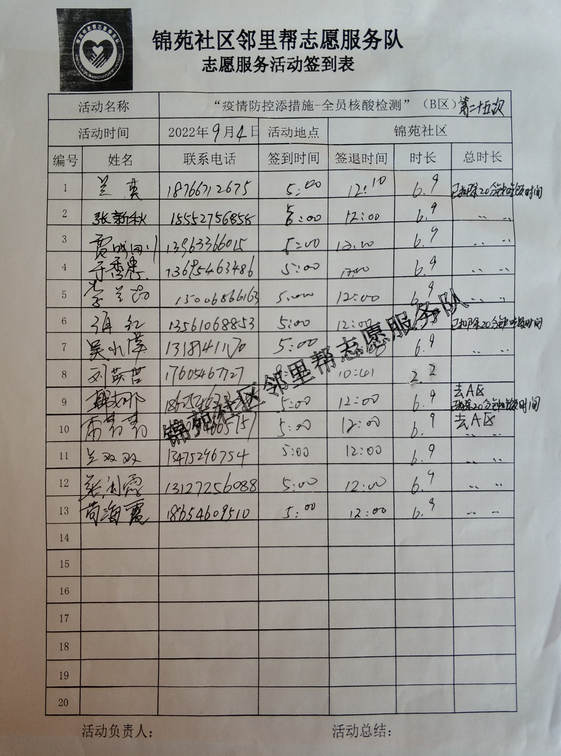 锦苑社区邻里帮志愿服务队
志愿服务活动签到表
活动名称 “疫情防控添措施-全员核酸检测”（B区）第二十五次
活动时间 2022年9月4日 活动地点 锦苑社区
编号 姓名 联系电话 签到时间 签退时间 时长 总时长
1 兰英 18766712675 5:00 12:10 6.9 已扣除20分钟吃饭时间
2 张新秋 15552756858 5:00 12:00 6.9 〃 〃
3 13963366015 5:00 12:00 6.9 〃 〃
4 13695463486 5:00 12:00 6.9 〃 〃
5 15006866163 5:00 12:00 6.9 〃 〃
6 张红 13561068853 5:00 12:00 6.9 已扣除20分钟吃饭时间
7 5:00 6.9 〃 〃
8 17605467727 2.2
9 5:00 12:00 6.9 去A区 已扣除20分钟吃饭时间
10 5:00 12:00 6.9 去A区 〃 〃
11 兰双双 13475296754 5:00 12:00 6.9 〃 〃
12 13127256088 5:00 12:00 6.9 〃 〃
13 苟海霞 18654609510 5:00 12:00 6.9 〃 〃
14
15
16
17
18
19
20
锦苑社区邻里帮志愿服务队
活动负责人： 活动总结：